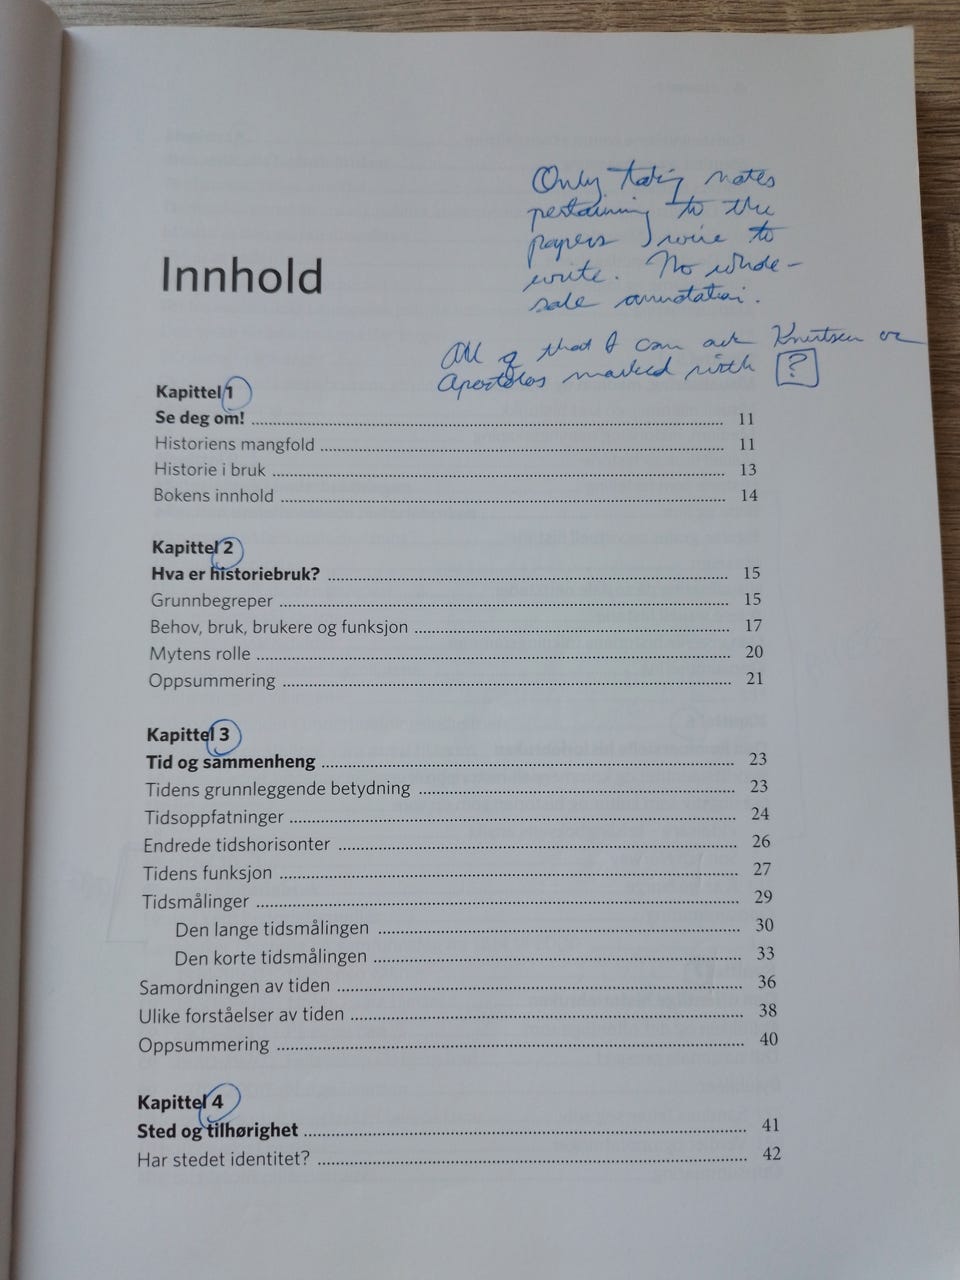 Only taking notes
pertaining to the
papers I
write. No whole-
sale annotation.
All of that I can ask Knutsen or
Apostolos marked with ?
Innhold
Kapittel 1
Se deg om! 11
Historiens mangfold 11
Historie i bruk 13
Bokens innhold 14
Kapittel 2
Hva er historiebruk? 15
Grunnbegreper 15
Behov, bruk, brukere og funksjon 17
Mytens rolle 20
Oppsummering 21
Kapittel 3
Tid og sammenheng 23
Tidens grunnleggende betydning 23
Tidsoppfatninger 24
Endrede tidshorisonter 26
Tidens funksjon 27
Tidsmålinger 29
Den lange tidsmålingen 30
Den korte tidsmålingen 33
Samordningen av tiden 36
Ulike forståelser av tiden 38
Oppsummering 40
Kapittel 4
Sted og tilhørighet 41
Har stedet identitet? 42